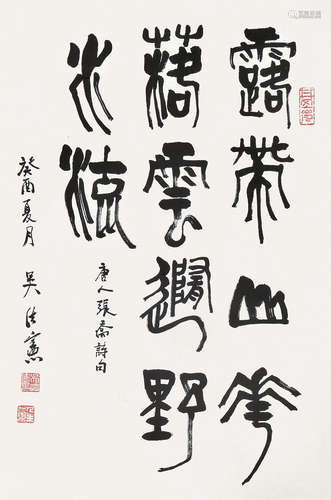 露帶山花
落雲隨野
水流
唐人張喬詩句
癸酉夏月 吳法憲